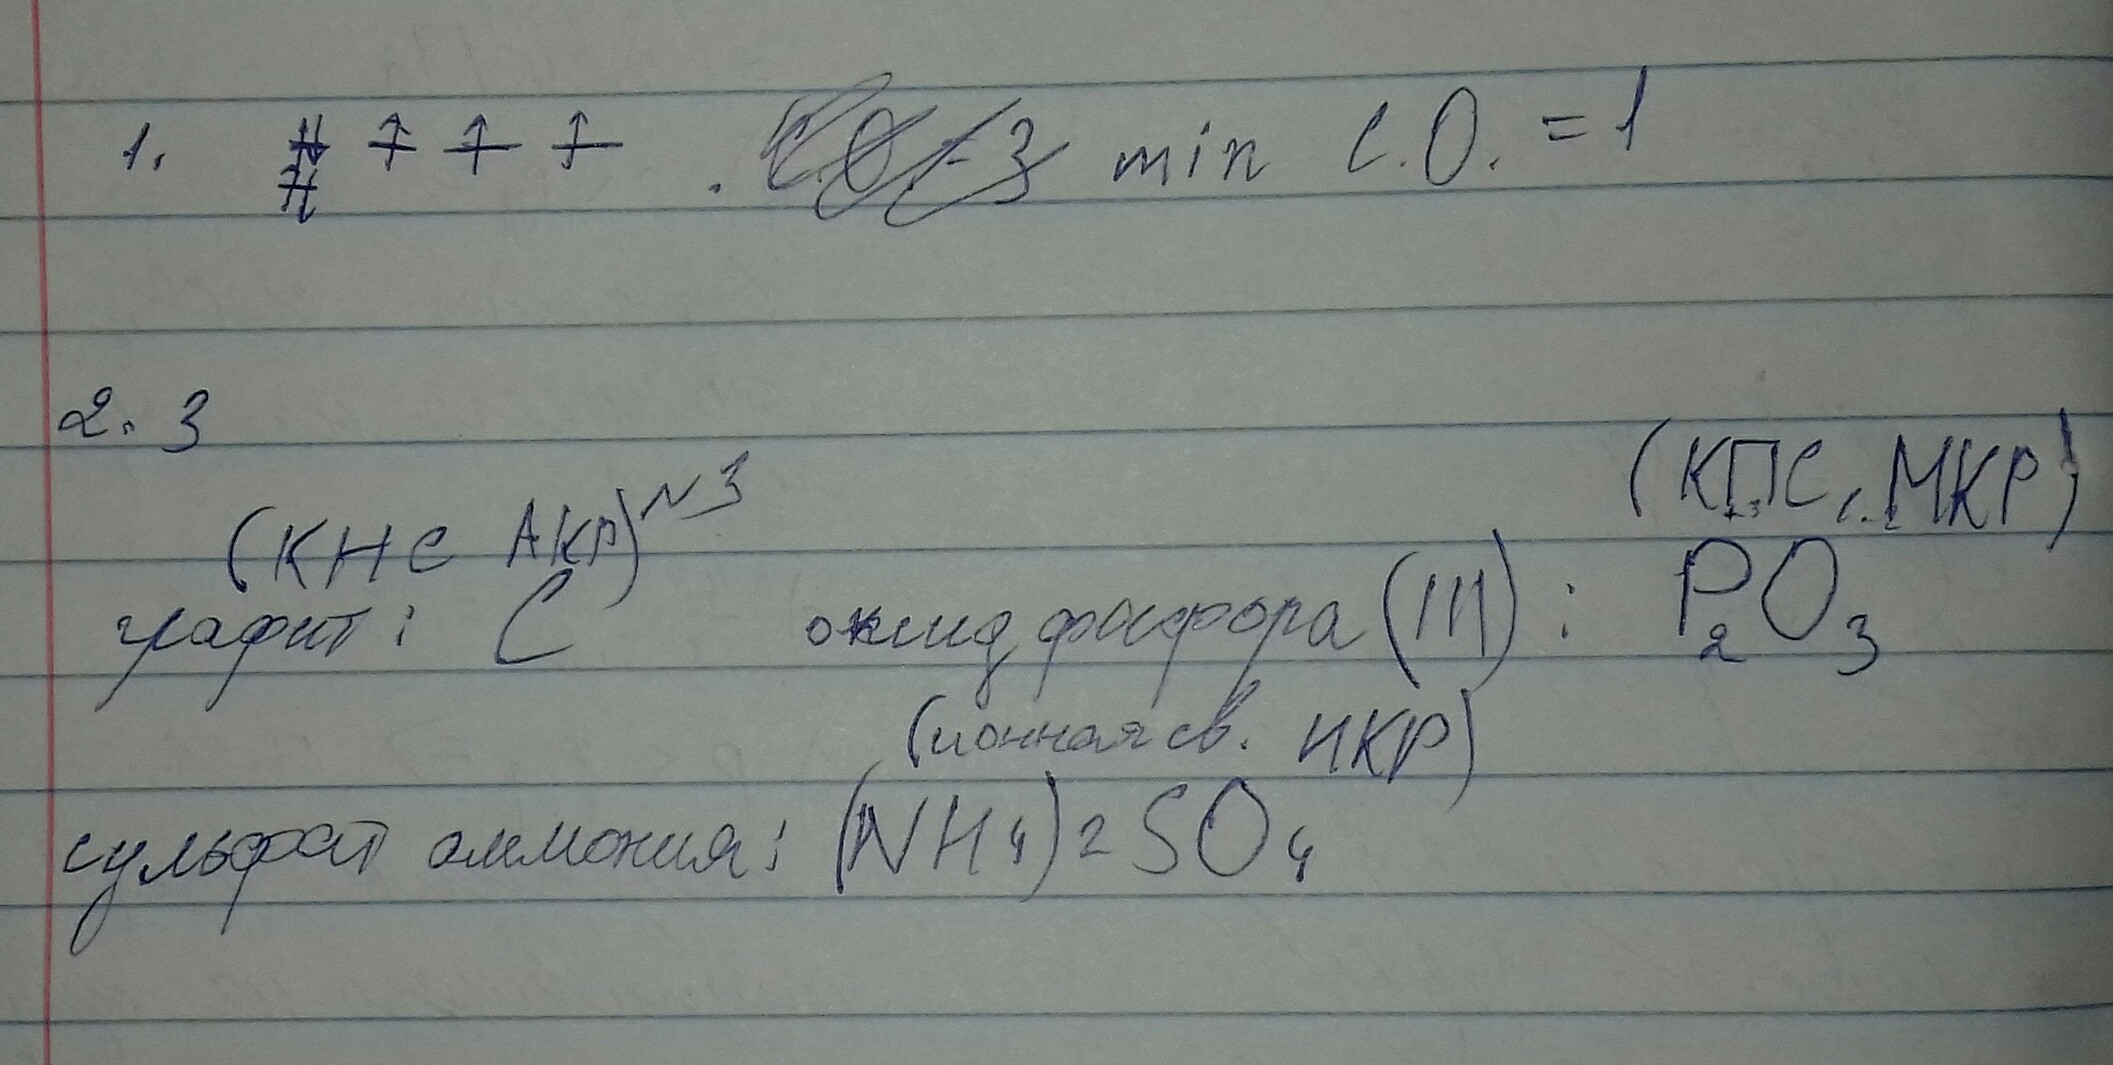 1. min С.О. = 1
2. 3
(КНС АКР) №3 (КПС, МКР)
графит: C оксид фосфора (III): P₂O₃
(ионная св. ИКР)
сульфат аммония: (NH₄)₂SO₄